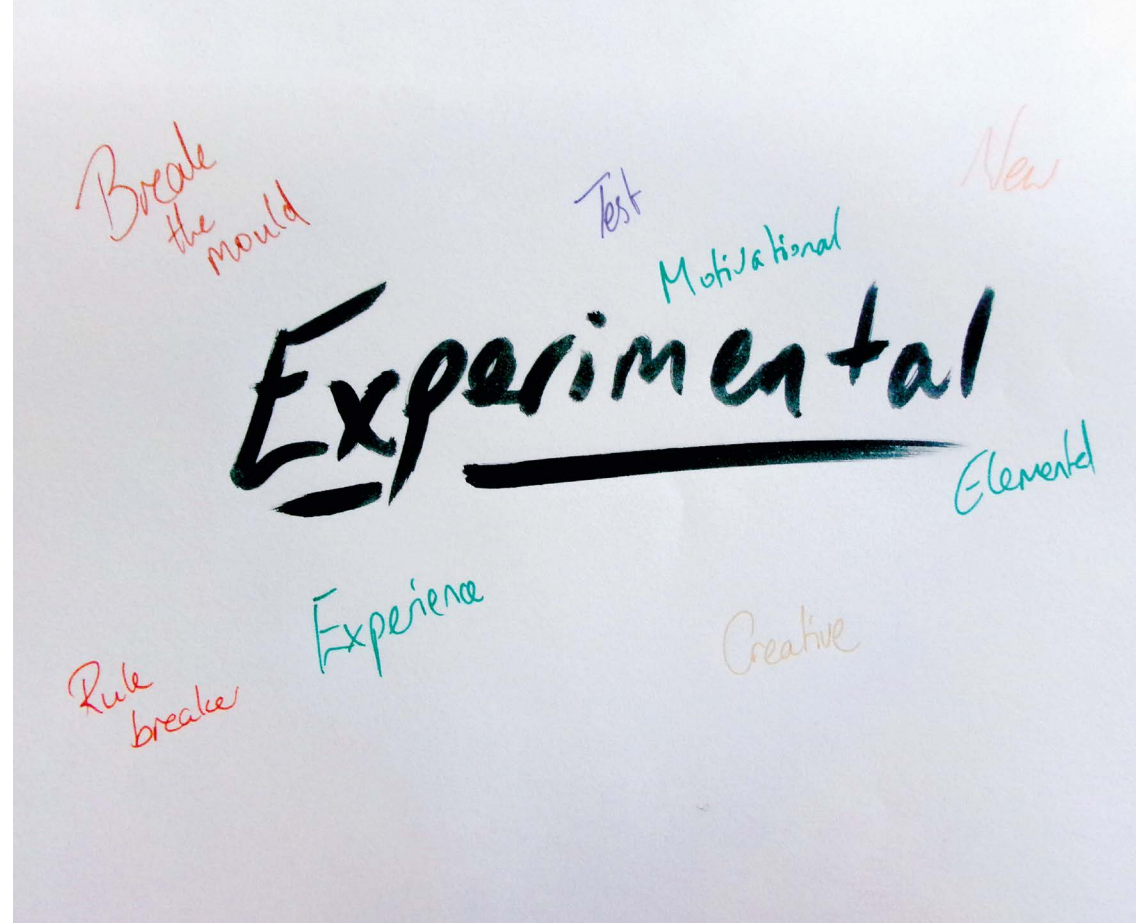 Break
the
mould
Test
New
Motivational
Experimental
Elemental
Experience
Creative
Rule
breaker